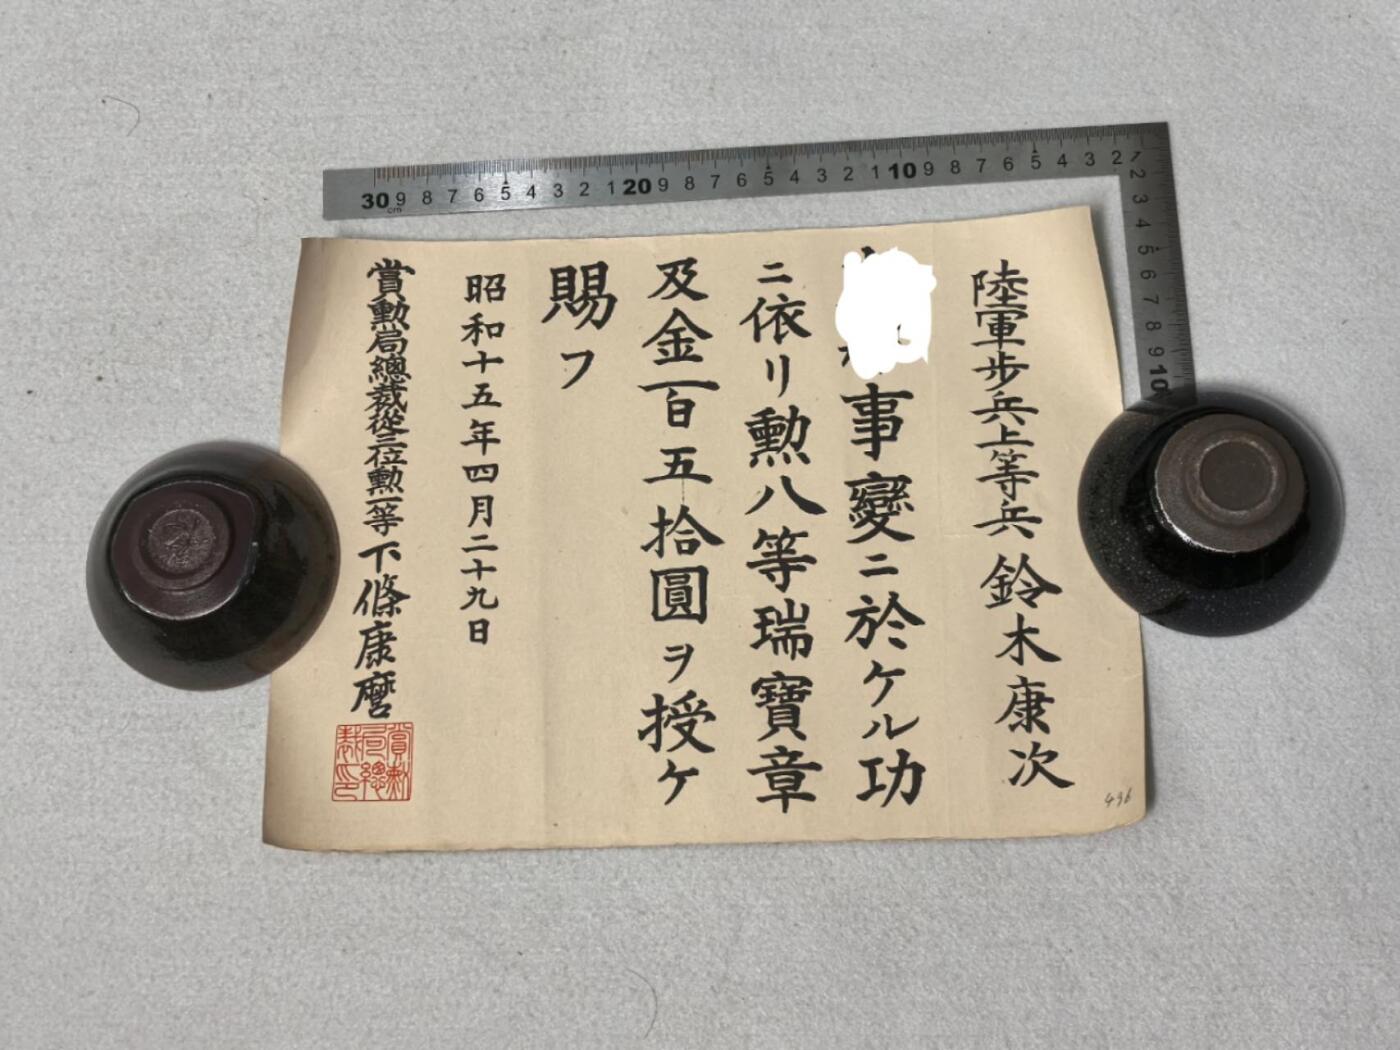 陸軍歩兵上等兵 鈴木康次
事變ニ於ケル功
ニ依リ勲八等瑞寶章
及金百五拾圓ヲ授ケ
賜フ
昭和十五年四月二十九日
賞勲局總裁從三位勲一等下條康麿
賞勲局總裁印
496
30 9 8 7 6 5 4 3 2 1 20 9 8 7 6 5 4 3 2 1 10 9 8 7 6 5 4 3 2
cm
2 3 4 5 6 7 8 9 10